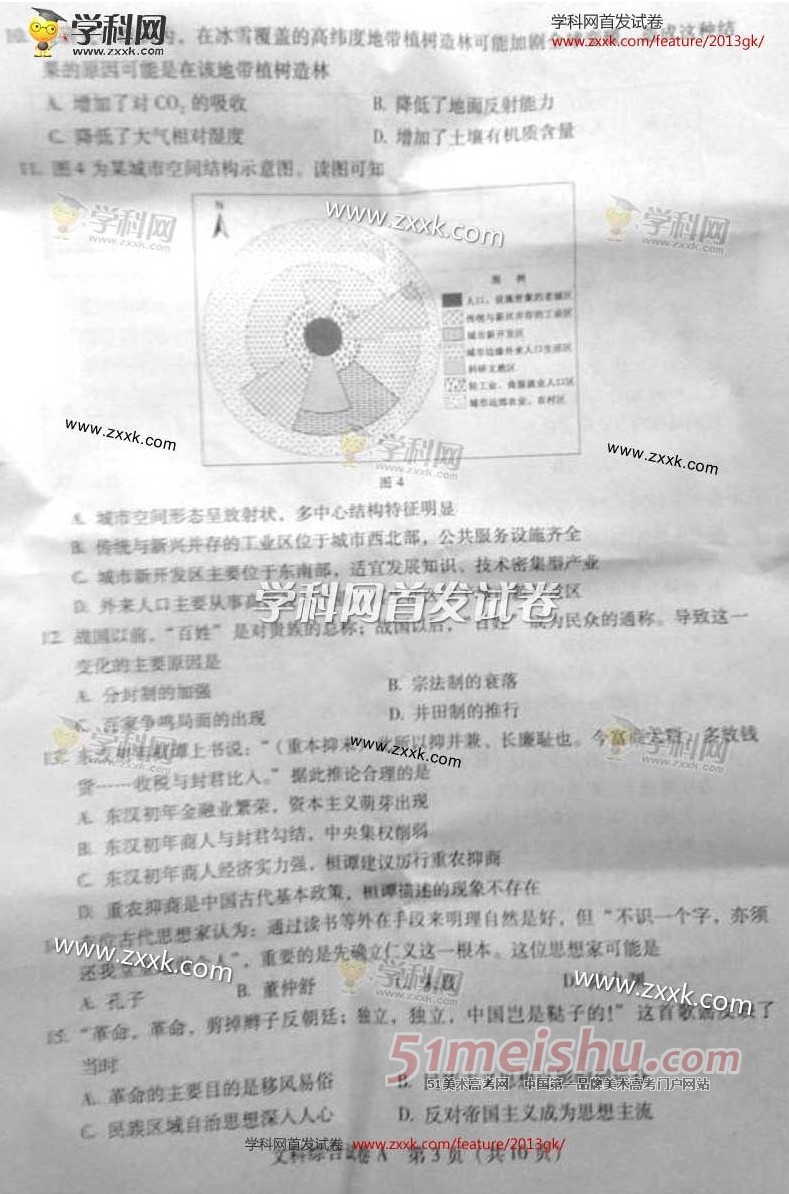 学科网
www.zxxk.com
学科网首发试卷
www.zxxk.com/feature/2013gk/
在冰雪覆盖的高纬度地带植树造林可能加剧
果的原因可能是在该地带植树造林
A. 增加了对CO₂的吸收 B. 降低了地面反射能力
C. 降低了大气相对湿度 D. 增加了土壤有机质含量
11. 图4为某城市空间结构示意图。读图可知
学科网
www.zxxk.com
www.zxxk.com
学科网
www.zxxk.com
N
图例
人口、设施密集的老城区
传统与新兴并存的工业区
城市新开发区
城市边缘外来人口生活区
科研文教区
轻工业、商服就业人口区
城市远郊农业、农村区
www.zxxk.com
学科网
www.zxxk.com
www.zxxk.com
图4
A. 城市空间形态呈放射状，多中心结构特征明显
B. 传统与新兴并存的工业区位于城市西北部，公共服务设施齐全
C. 城市新开发区主要位于东南部，适宜发展知识、技术密集型产业
D. 外来人口主要从事高
学科网首发试卷
12. 战国以前，“百姓”是对贵族的总称；战国以后，“百姓”成为民众的通称。导致这一
变化的主要原因是
A. 分封制的加强 B. 宗法制的衰落
C. 百家争鸣局面的出现 D. 井田制的推行
学科网
www.zxxk.com
www.zxxk.com
学科网
www.zxxk.com
13. 上书说：“（重本抑末）此所以抑并兼、长廉耻也。今富商大贾，多放钱
货……收税与封君比人。”据此推论合理的是
A. 东汉初年金融业繁荣，资本主义萌芽出现
B. 东汉初年商人与封君勾结，中央集权削弱
C. 东汉初年商人经济实力强，桓谭建议厉行重农抑商
D. 重农抑商是中国古代基本政策，桓谭描述的现象不存在
古代思想家认为：通过读书等外在手段来明理自然是好，但“不识一个字，亦须
www.zxxk.com
人”，重要的是先确立仁义这一根本。这位思想家可能是
A. 孔子 B. 董仲舒
学科网
www.zxxk.com
www.zxxk.com
15. “革命，革命，剪掉辫子反朝廷；独立，独立，中国岂是鞑子的！”这首歌谣反映了
当时
51meishu.com
51美术高考网 中国第一品牌美术高考门户网站
A. 革命的主要目的是移风易俗
C. 民族区域自治思想深入人心 D. 反对帝国主义成为思想主流
学科网首发试卷 www.zxxk.com/feature/2013gk/
文科综合试卷A 第3页（共10页）